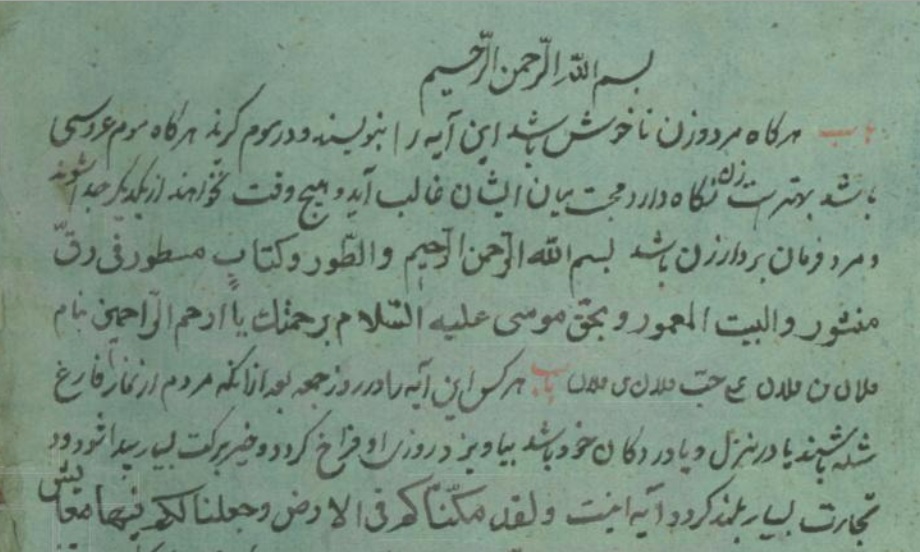 بسم الله الرّحمن الرّحیم
باب هرکاه مرد و زن ناخوش باشد این آیه را بنویسند و در موم کیرند هرکاه موم عروسی
باشد بهتر است زن نکاه دارد محبت میان ایشان غالب آید و هیچ وقت نخواهند از یکدیکر جدا شوند
و مرد فرمان بردار زن باشد بسم الله الرّحمن الرّحیم والطّور وکتابٍ مسطور فی رقّ
منشور والبیت المعمور وبحق موسی علیه السّلام برحمتك یا ارحم الرّاحمین بنام
فلان بن فلان علی حبّ فلان بن فلان باب هرکس این آیه را در روز جمعه بعد از آنکه مردم از نماز فارغ
شده باشند یا در منزل و یا در دکان خود باشد بیاویزد روزی او فراخ کردد و خیر برکت بسیار پیدا شود و در
تجارت بسیار بلند کردد آیه اینست ولقد مکّنّاکم فی الارض وجعلنا لکم فیها معایش